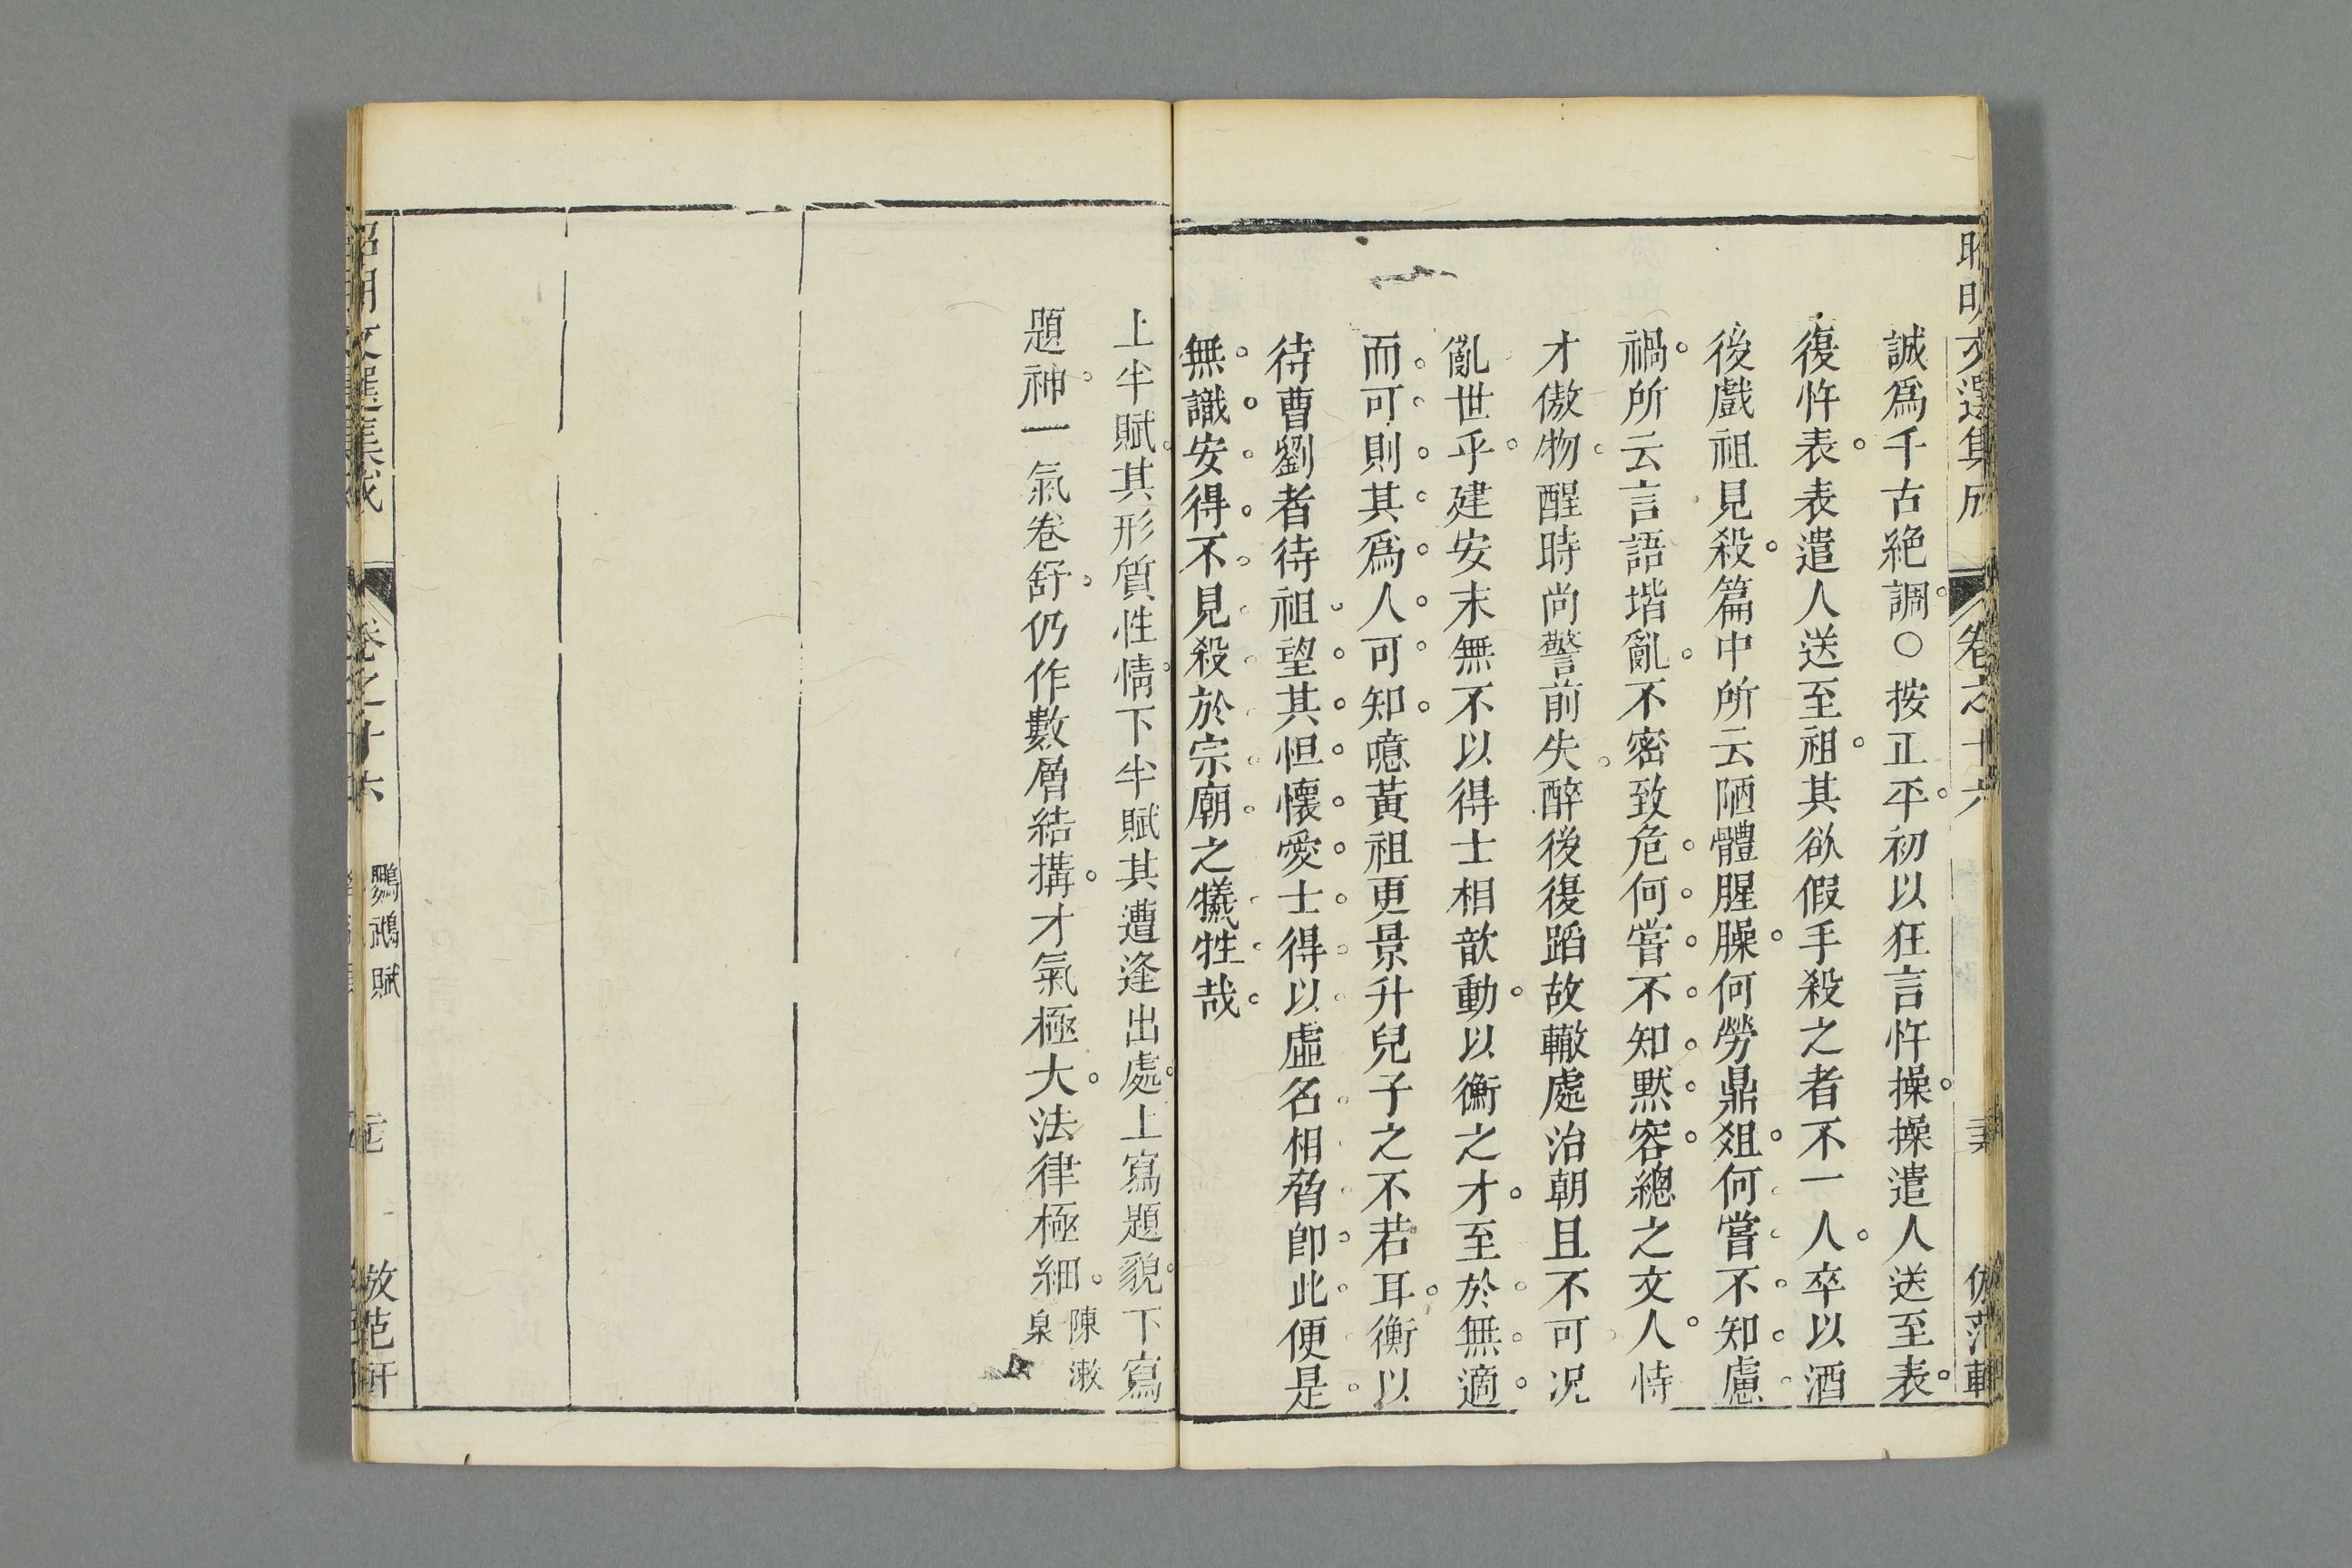 昭明文選集成
卷之十六
誠爲千古絶調○按正平初以狂言忤操操遣人送至表
復忤表表遣人送至祖其欲假手殺之者不一人卒以酒
後戲祖見殺篇中所云陋體腥臊何勞鼎俎何嘗不知慮
禍所云言語堦亂不密致危何嘗不知默容總之文人恃
才傲物醒時尚警前失醉後復蹈故轍處治朝且不可况
亂世乎建安末無不以得士相歆動以衡之才至於無適
而可則其爲人可知噫黃祖更景升兒子之不若耳衡以
待曹劉者待祖望其怛懷愛士得以虛名相脅卽此便是
無識安得不見殺於宗廟之犧牲哉
上半賦其形質性情下半賦其遭逢出處上寫題貌下寫
題神一氣卷舒仍作數層結搆才氣極大法律極細陳漱
泉
昭明文選集成
卷之十六
鸚鵡賦